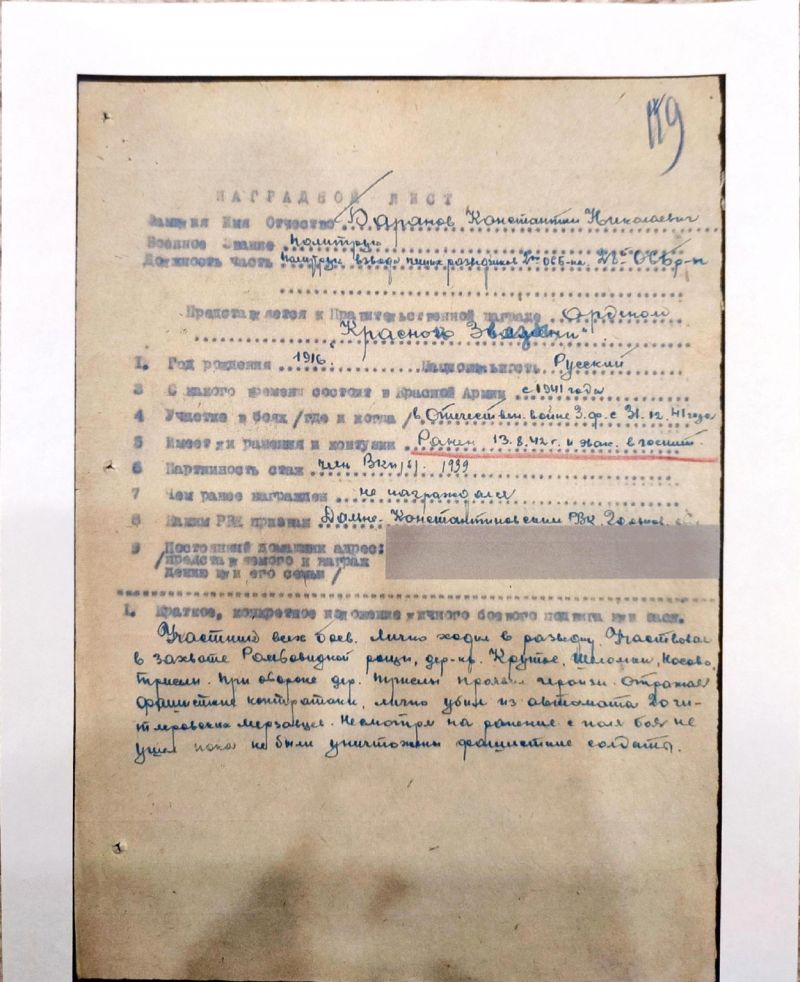 119
НАГРАДНОЙ ЛИСТ
Фамилия Имя Отчество Баранов Константин Николаевич
Военное Звание Политрук
Должность часть Политрук взвода пеших разведчиков 2го ОСБ-на 28й ОСБр-ы
Представляется к Правительственной награде Орденом
"Красного Звезды"
1. Год рождения 1916. Национальность Русский
3 С какого времени состоит в Красной Армии с 1941 года
4 Участие в боях /где и когда/ в Отечествен. войне З.ф. с 31.12.41 года
5 Имеет ли ранения и контузии Ранен 13.8.42 г. и эвак. в госпит.
6 Партийность стаж член ВКП(б). 1939
7 Чем ранее награжден не награждался
8 Каким РВК призван Дальне-Константиновским РВК, Горьков. обл
9 Постоянный домашний адрес:
/представляемого к награж
дению или его семьи/
1. Краткое, конкретное изложение личного боевого подвига или засл.
Участник всех боев. Лично ходил в разведку. Участвовал
в захвате Ромбовидной рощи, дер-нь Крутое, Шеломки, Носово,
Трислы. При обороне дер. Трислы проявил героизм. Отражая
фашистские контратаки, лично убил из автомата 20 ги-
тлеровских мерзавцев. Несмотря на ранение с поля боя не
ушел пока не были уничтожены фашистские солдаты.